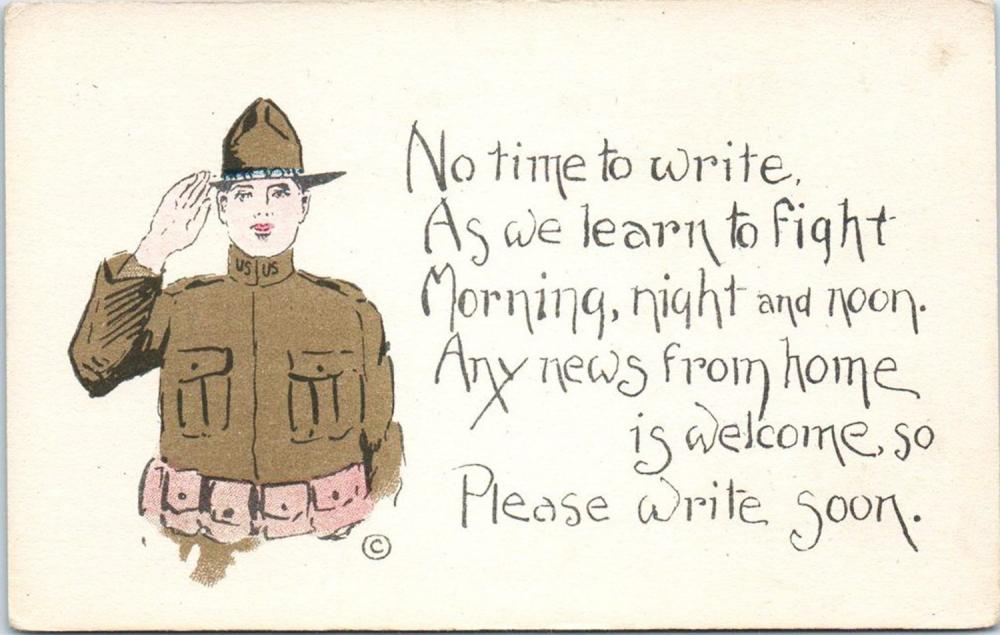 No time to write,
As we learn to fight
Morning, night and noon.
Any news from home
is welcome, so
Please write soon.
US US
©